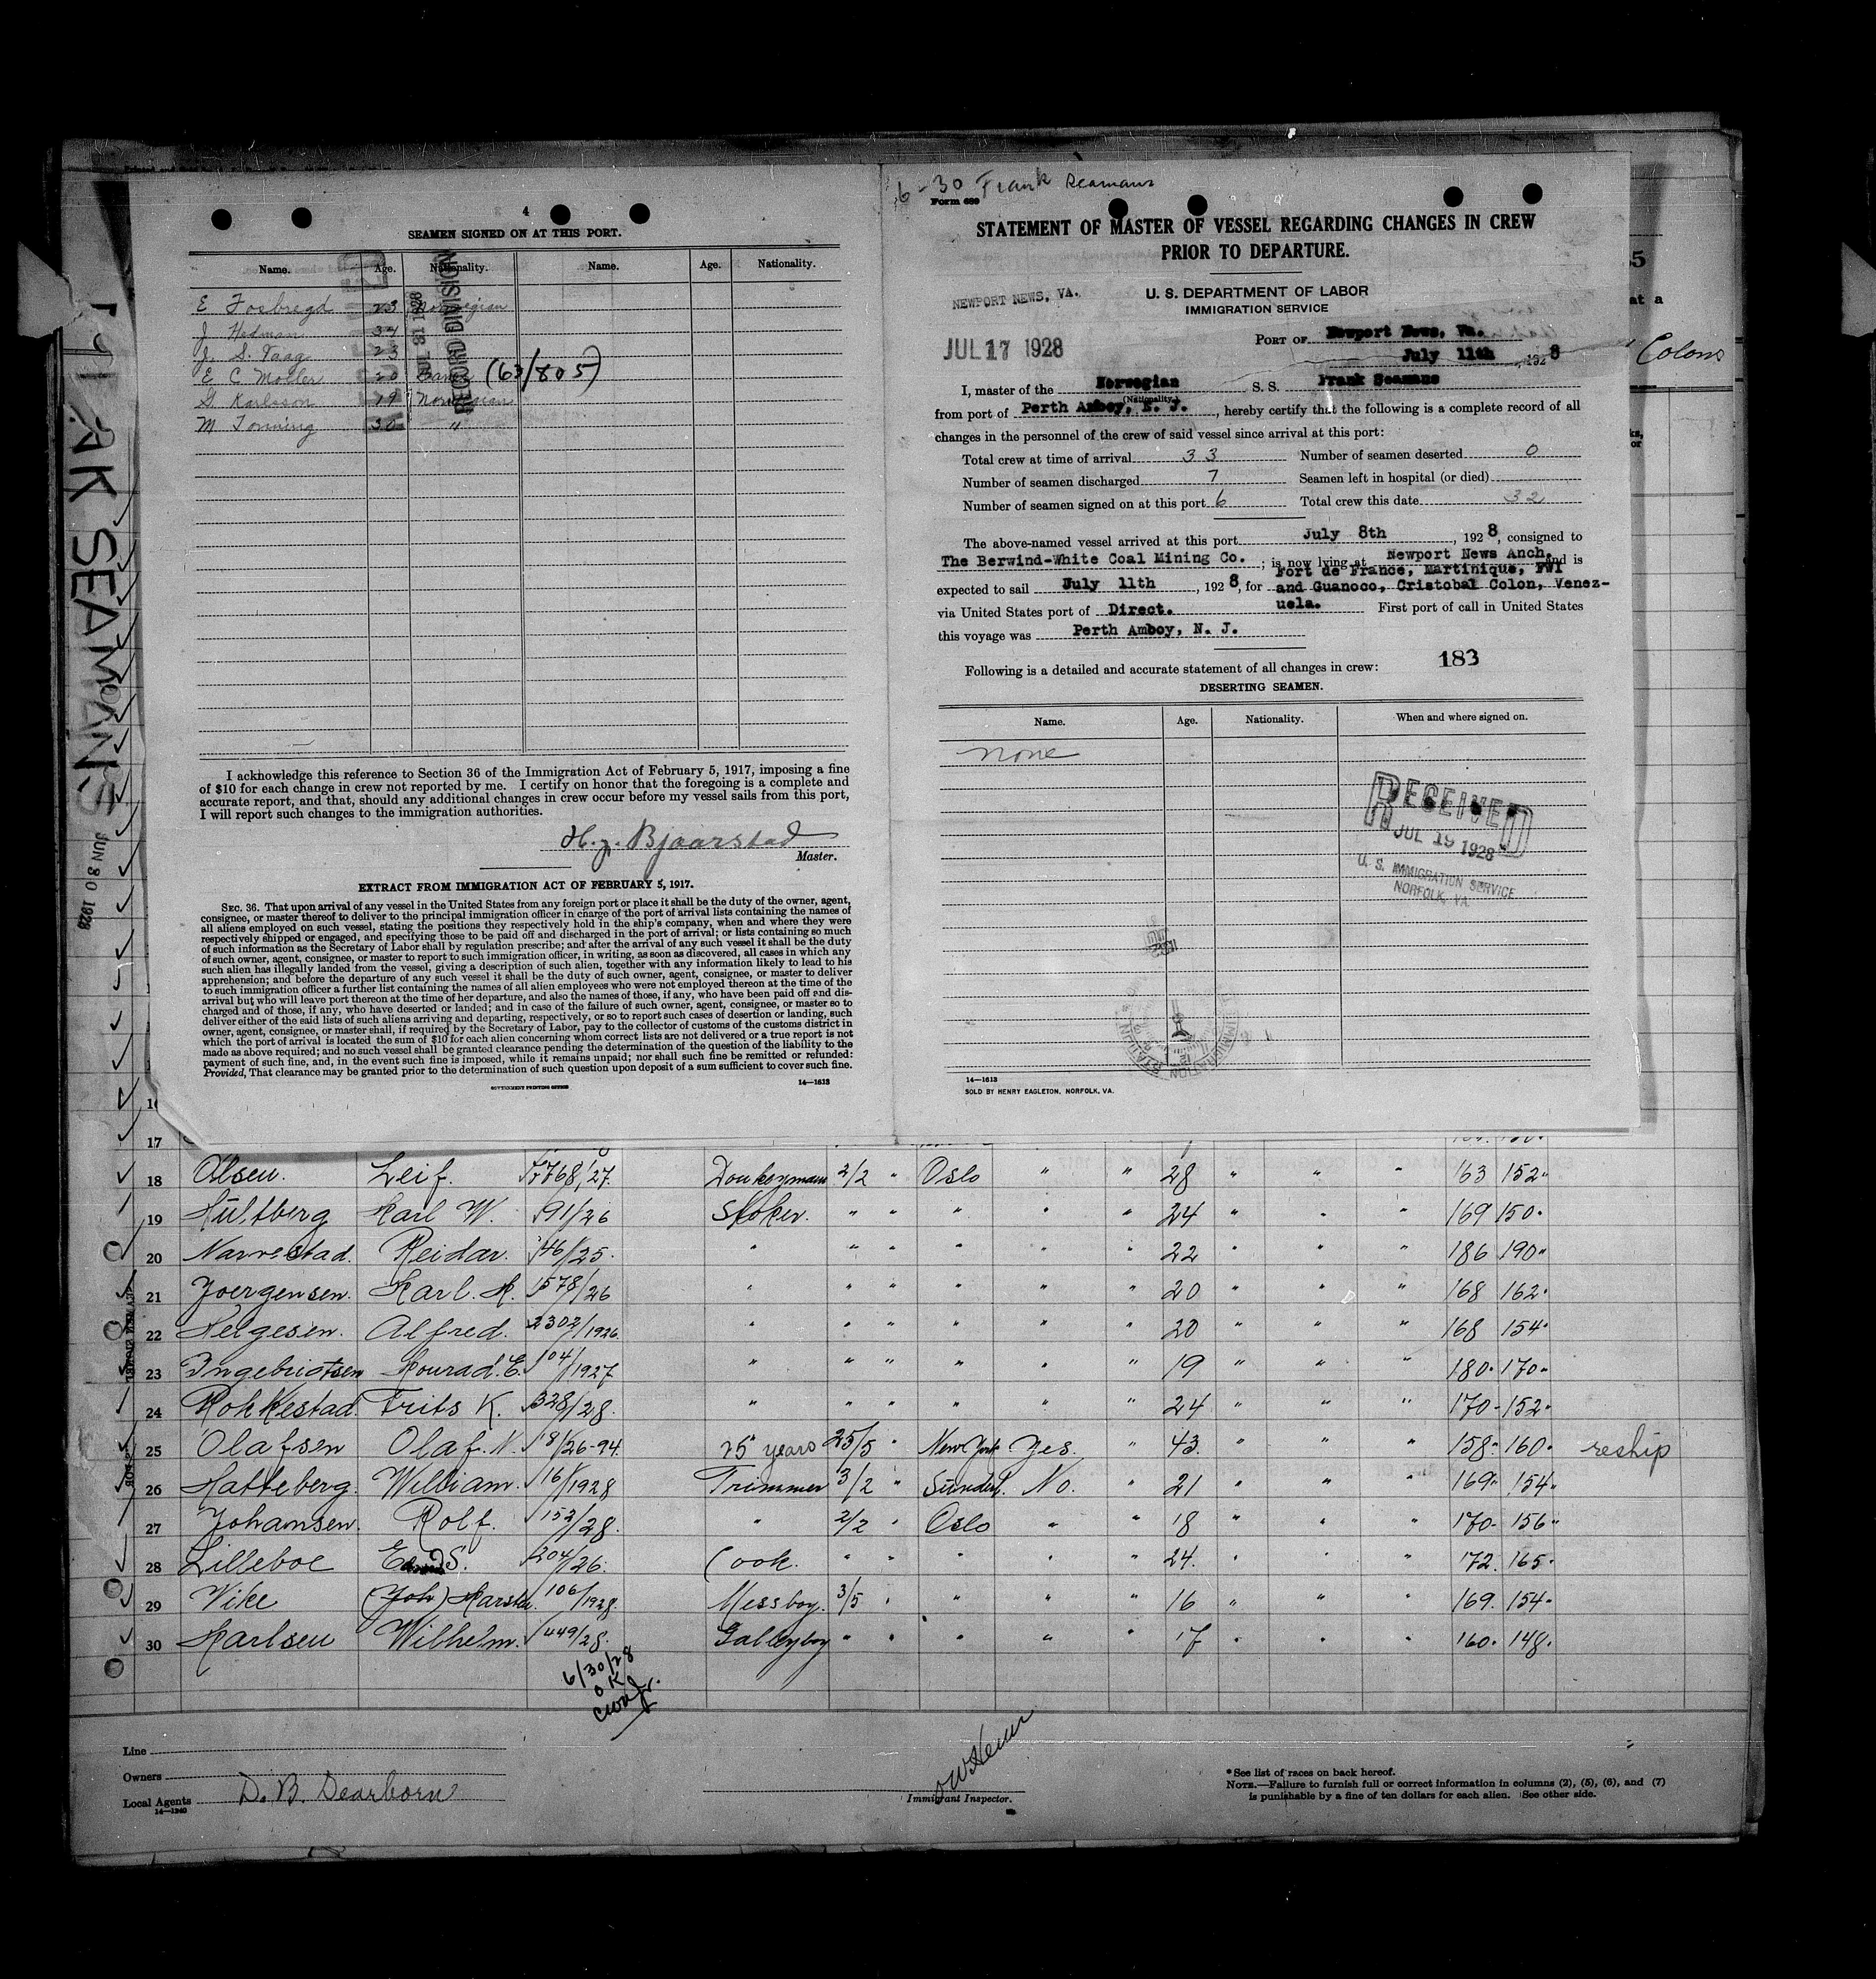 6-30 Frank Seamans
4
SEAMEN SIGNED ON AT THIS PORT.
Name. Age. Nationality. Name. Age. Nationality.
E Fosbregd 23 Norwegian
J Hedman 34
J. S. Vaag 23
E C Moller 20 Danis (63/805)
G Karlsson 19 Norwegian
M Tonning 30 "
RECORD DIVISION
JUL 31 1928
I acknowledge this reference to Section 36 of the Immigration Act of February 5, 1917, imposing a fine
of $10 for each change in crew not reported by me. I certify on honor that the foregoing is a complete and
accurate report, and that, should any additional changes in crew occur before my vessel sails from this port,
I will report such changes to the immigration authorities.
H. J. Bjaarstad
Master.
EXTRACT FROM IMMIGRATION ACT OF FEBRUARY 5, 1917.
SEC. 36. That upon arrival of any vessel in the United States from any foreign port or place it shall be the duty of the owner, agent,
consignee, or master thereof to deliver to the principal immigration officer in charge of the port of arrival lists containing the names of
all aliens employed on such vessel, stating the positions they respectively hold in the ship's company, when and where they were
respectively shipped or engaged, and specifying those to be paid off and discharged in the port of arrival; or lists containing so much
of such information as the Secretary of Labor shall by regulation prescribe; and after the arrival of any such vessel it shall be the duty
of such owner, agent, consignee, or master to report to such immigration officer, in writing, as soon as discovered, all cases in which any
such alien has illegally landed from the vessel, giving a description of such alien, together with any information likely to lead to his
apprehension; and before the departure of any such vessel it shall be the duty of such owner, agent, consignee, or master to deliver
to such immigration officer a further list containing the names of all alien employees who were not employed thereon at the time of the
arrival but who will leave port thereon at the time of her departure, and also the names of those, if any, who have been paid off and dis-
charged and of those, if any, who have deserted or landed; and in case of the failure of such owner, agent, consignee, or master so to
deliver either of the said lists of such aliens arriving and departing, respectively, or so to report such cases of desertion or landing, such
owner, agent, consignee, or master shall, if required by the Secretary of Labor, pay to the collector of customs of the customs district in
which the port of arrival is located the sum of $10 for each alien concerning whom correct lists are not delivered or a true report is not
made as above required; and no such vessel shall be granted clearance pending the determination of the question of the liability to the
payment of such fine, and, in the event such fine is imposed, while it remains unpaid; nor shall such fine be remitted or refunded:
Provided, That clearance may be granted prior to the determination of such question upon deposit of a sum sufficient to cover such fine.
GOVERNMENT PRINTING OFFICE 14—1613
Form 689
STATEMENT OF MASTER OF VESSEL REGARDING CHANGES IN CREW
PRIOR TO DEPARTURE.
U. S. DEPARTMENT OF LABOR
IMMIGRATION SERVICE
NEWPORT NEWS, VA.
JUL 17 1928
PORT OF Newport News, Va.
July 11th, 1928
I, master of the Norwegian S. S. Frank Seamans
(Nationality.)
from port of Perth Amboy, N. J., hereby certify that the following is a complete record of all
changes in the personnel of the crew of said vessel since arrival at this port:
Total crew at time of arrival 33 Number of seamen deserted 0
Number of seamen discharged 7 Seamen left in hospital (or died)
Number of seamen signed on at this port 6 Total crew this date 32
The above-named vessel arrived at this port July 8th, 1928, consigned to
The Berwind-White Coal Mining Co.; is now lying at Newport News Anch. and is
expected to sail July 11th, 1928, for Fort de France, Martinique, FWI
and Guanoco, Cristobal Colon, Venez-
uela.
via United States port of Direct. First port of call in United States
this voyage was Perth Amboy, N. J.
Following is a detailed and accurate statement of all changes in crew: 183
DESERTING SEAMEN.
Name. Age. Nationality. When and where signed on.
none
RECEIVED
JUL 19 1928
U. S. IMMIGRATION SERVICE
NORFOLK, VA.
14—1613
SOLD BY HENRY EAGLETON, NORFOLK, VA.
5
at a
Colons
SEAMANS
JUN 30 1928
17
18 Olsen. Leif. 768/27. Donkeyman 2/2 " Oslo " " 28 " " " 163 152"
19 Hultberg Karl W. 91/26 Stoker. " " " " " 24 " " " 169 150"
20 Narvestad. Reidar. 46/25. " " " " " " 22 " " " 186 190"
21 Joergensen. Karl. H. 1578/26 " " " " " " 20 " " " 168 162"
22 Helgesen. Alfred. 2302/1926. " " " " " " 20 " " " 168 154"
23 Ingebrigtsen Konrad. E. 104/1927 " " " " " " 19 " " " 180" 170"
24 Rokkestad. Frits K. 328/28. " " " " " " 24 " " " 170" 152"
25 Olafsen Olaf. N. 18/26-94. 25 years 25/5 " New York Yes. " 43. " " " 158" 160" reship
26 Hatteberg. William. 16/1928 Trimmer 3/2 " Sunderl. No. " 21 " " " 169" 154"
27 Johansen. Rolf. 152/28. " 2/2 " Oslo " " 18 " " " 170" 156"
28 Lilleboe S. 204/26. Cook. " " " " " 24. " " " 172. 165"
29 Vike (Joh) Harstn. 106/1928. Messboy. 3/5 " " " " 16 " " " 169. 154"
30 Karlsen Wilhelm. 449/28. Galleyboy " " " " " 17 " " " 160" 148"
6/30/28
OK
Line
Owners
Local Agents D. B. Dearborn
14—1240
Immigrant Inspector.
*See list of races on back hereof.
NOTE.—Failure to furnish full or correct information in columns (2), (5), (6), and (7)
is punishable by a fine of ten dollars for each alien. See other side.